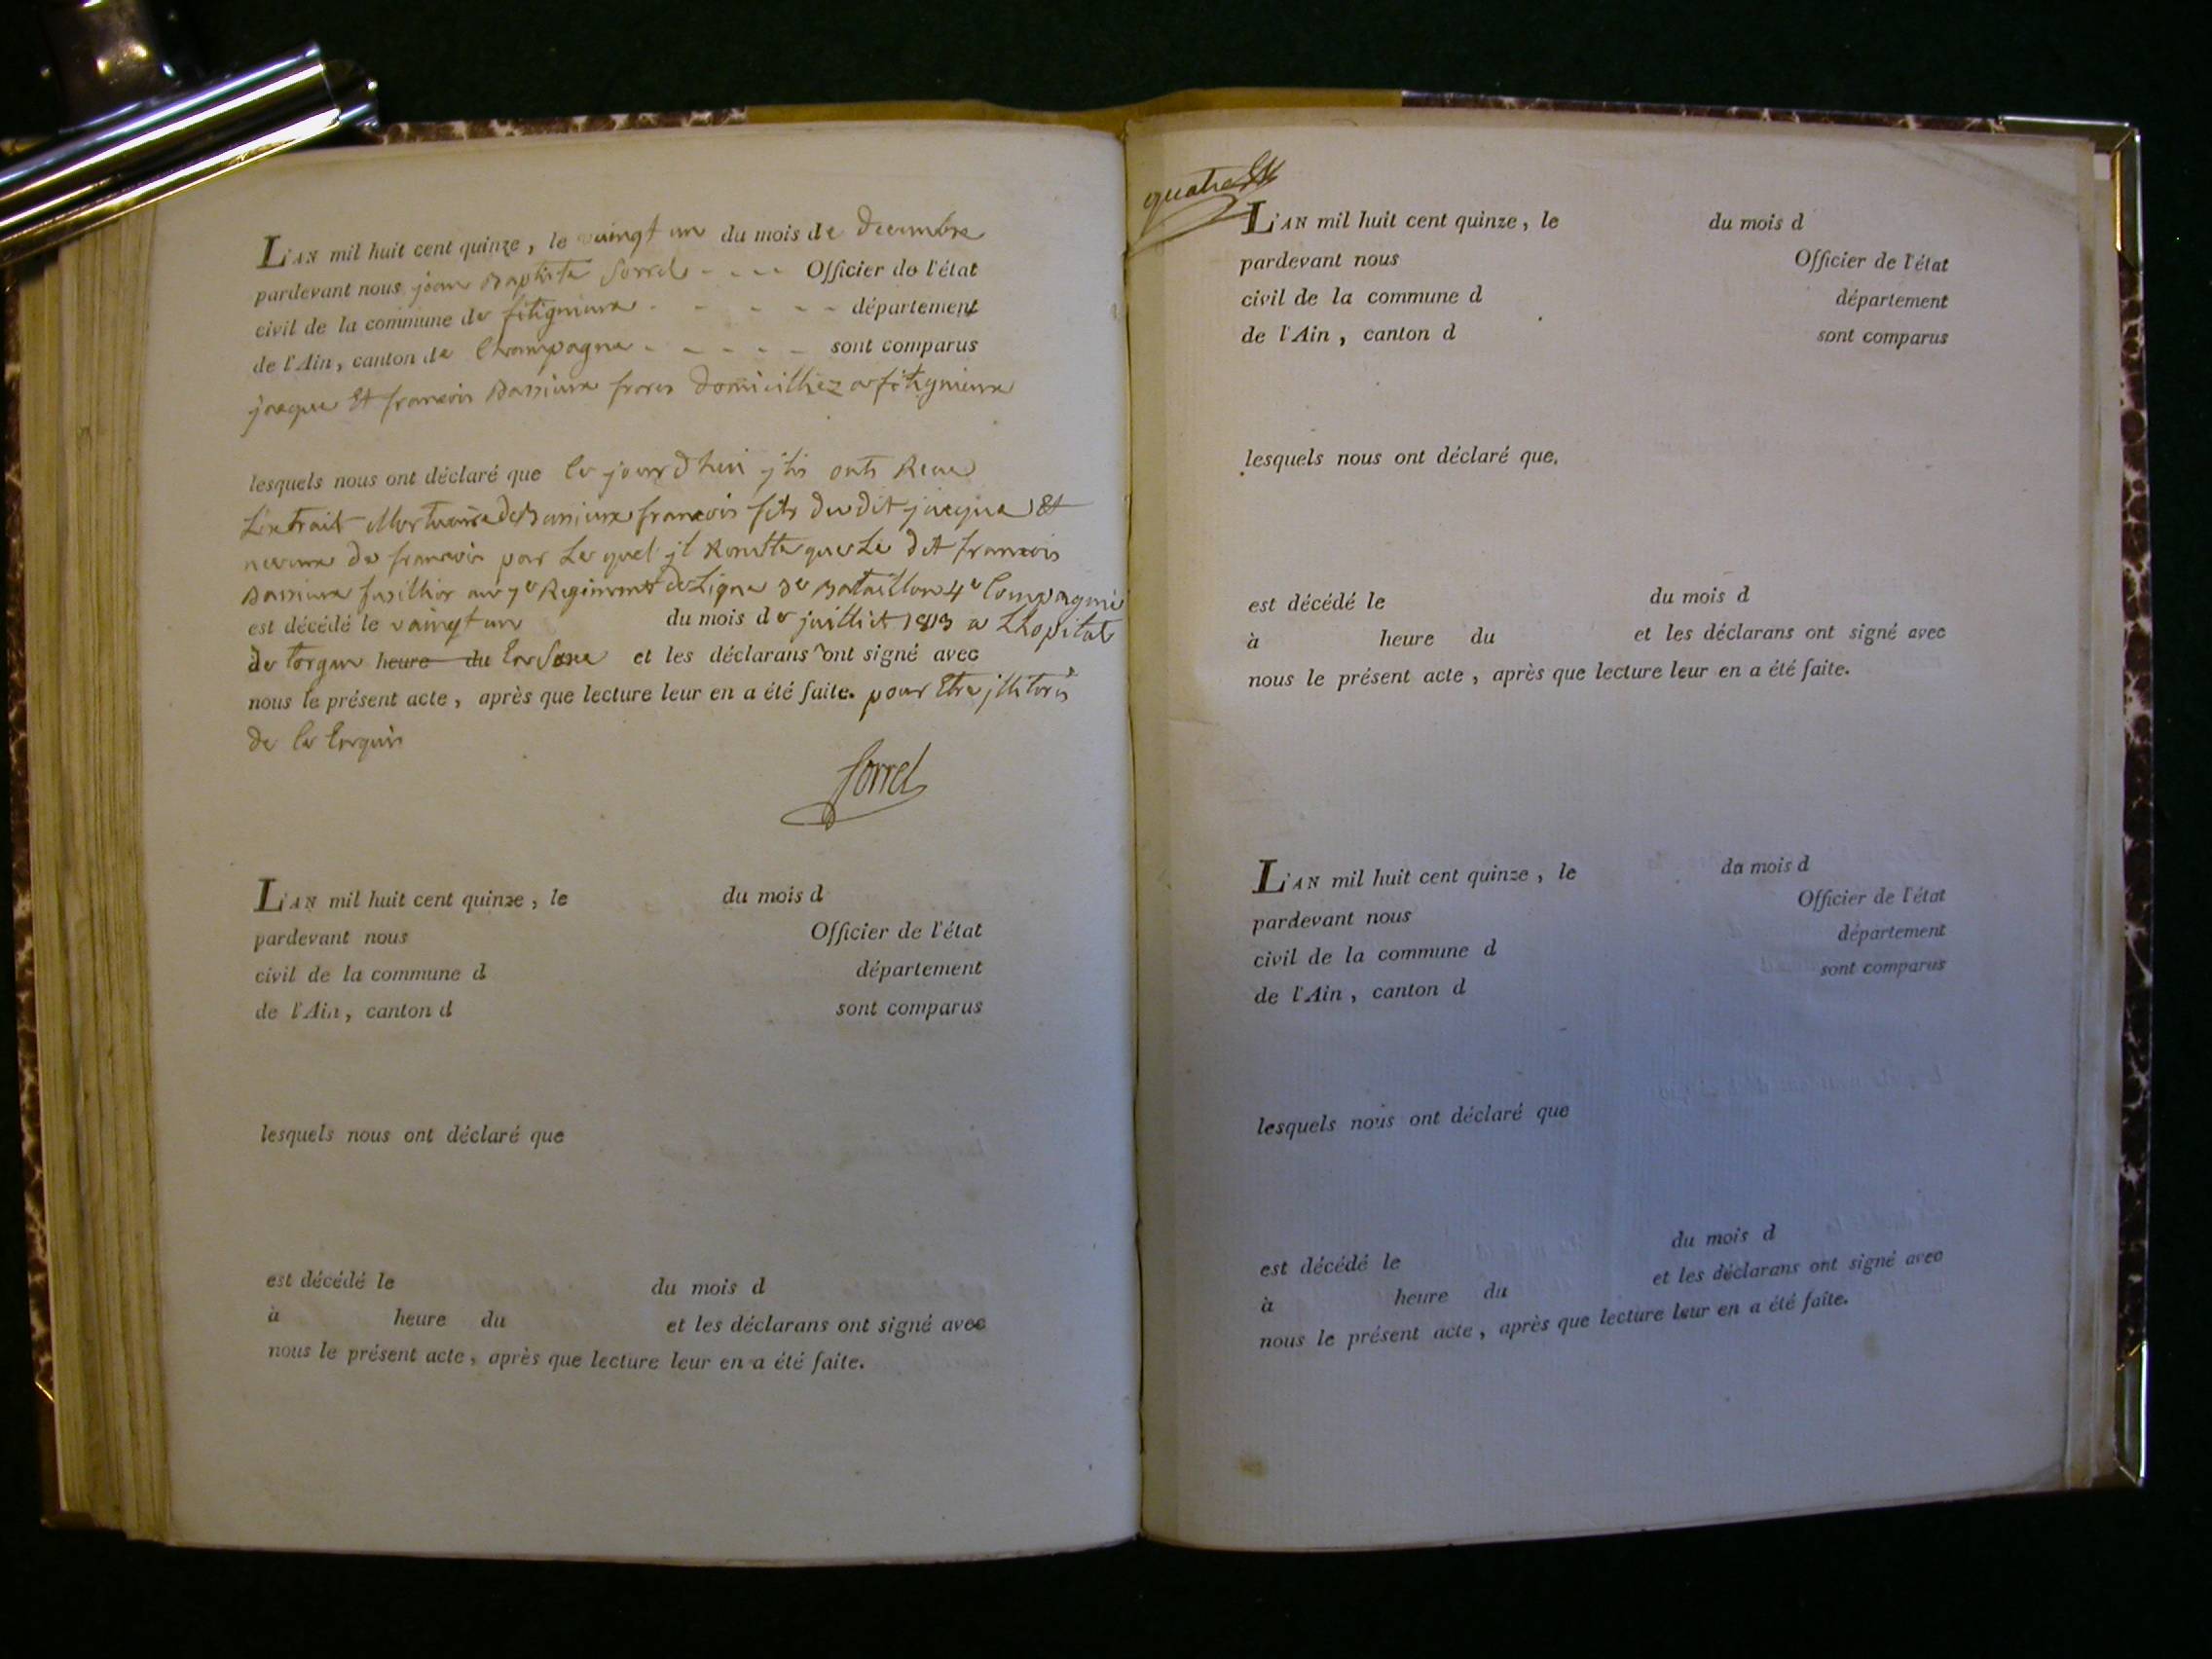 L'AN mil huit cent quinze, le vaingt un du mois de Decembre
pardevant nous jean Baptiste Sorrel - - - Officier de l'état
civil de la commune de fitignieux - - - - - département
de l'Ain, canton de Champagne - - - - - sont comparus
jacque Et francois Bassieux freres Domicilliez a fitignieux
lesquels nous ont déclaré que le jourd'hui jls onts Recue
L'extrait Mortuaire de Bassieux francois fils du dit jacque Et
neveux de francois par Le quel jl Konstte que Le dit francois
Bassieux fusillier au 7e Regiment de Ligne 3e Bataillon 4e Compagnie
est décédé le vaingt un du mois de juillict 1813 a Lhopital
de torgau heure du en Saxe et les déclarans ont signé avec
nous le présent acte, après que lecture leur en a été faite. pour Etre jllitorés
de ce
Sorrel
L'AN mil huit cent quinze, le du mois d
pardevant nous Officier de l'état
civil de la commune d département
de l'Ain, canton d sont comparus
lesquels nous ont déclaré que
est décédé le du mois d
à heure du et les déclarans ont signé avec
nous le présent acte, après que lecture leur en a été faite.
quatre
L'AN mil huit cent quinze, le du mois d
pardevant nous Officier de l'état
civil de la commune d département
de l'Ain, canton d sont comparus
lesquels nous ont déclaré que,
est décédé le du mois d
à heure du et les déclarans ont signé avec
nous le présent acte, après que lecture leur en a été faite.
L'AN mil huit cent quinze, le du mois d
pardevant nous Officier de l'état
civil de la commune d département
de l'Ain, canton d sont comparus
lesquels nous ont déclaré que
est décédé le du mois d
à heure du et les déclarans ont signé avec
nous le présent acte, après que lecture leur en a été faite.